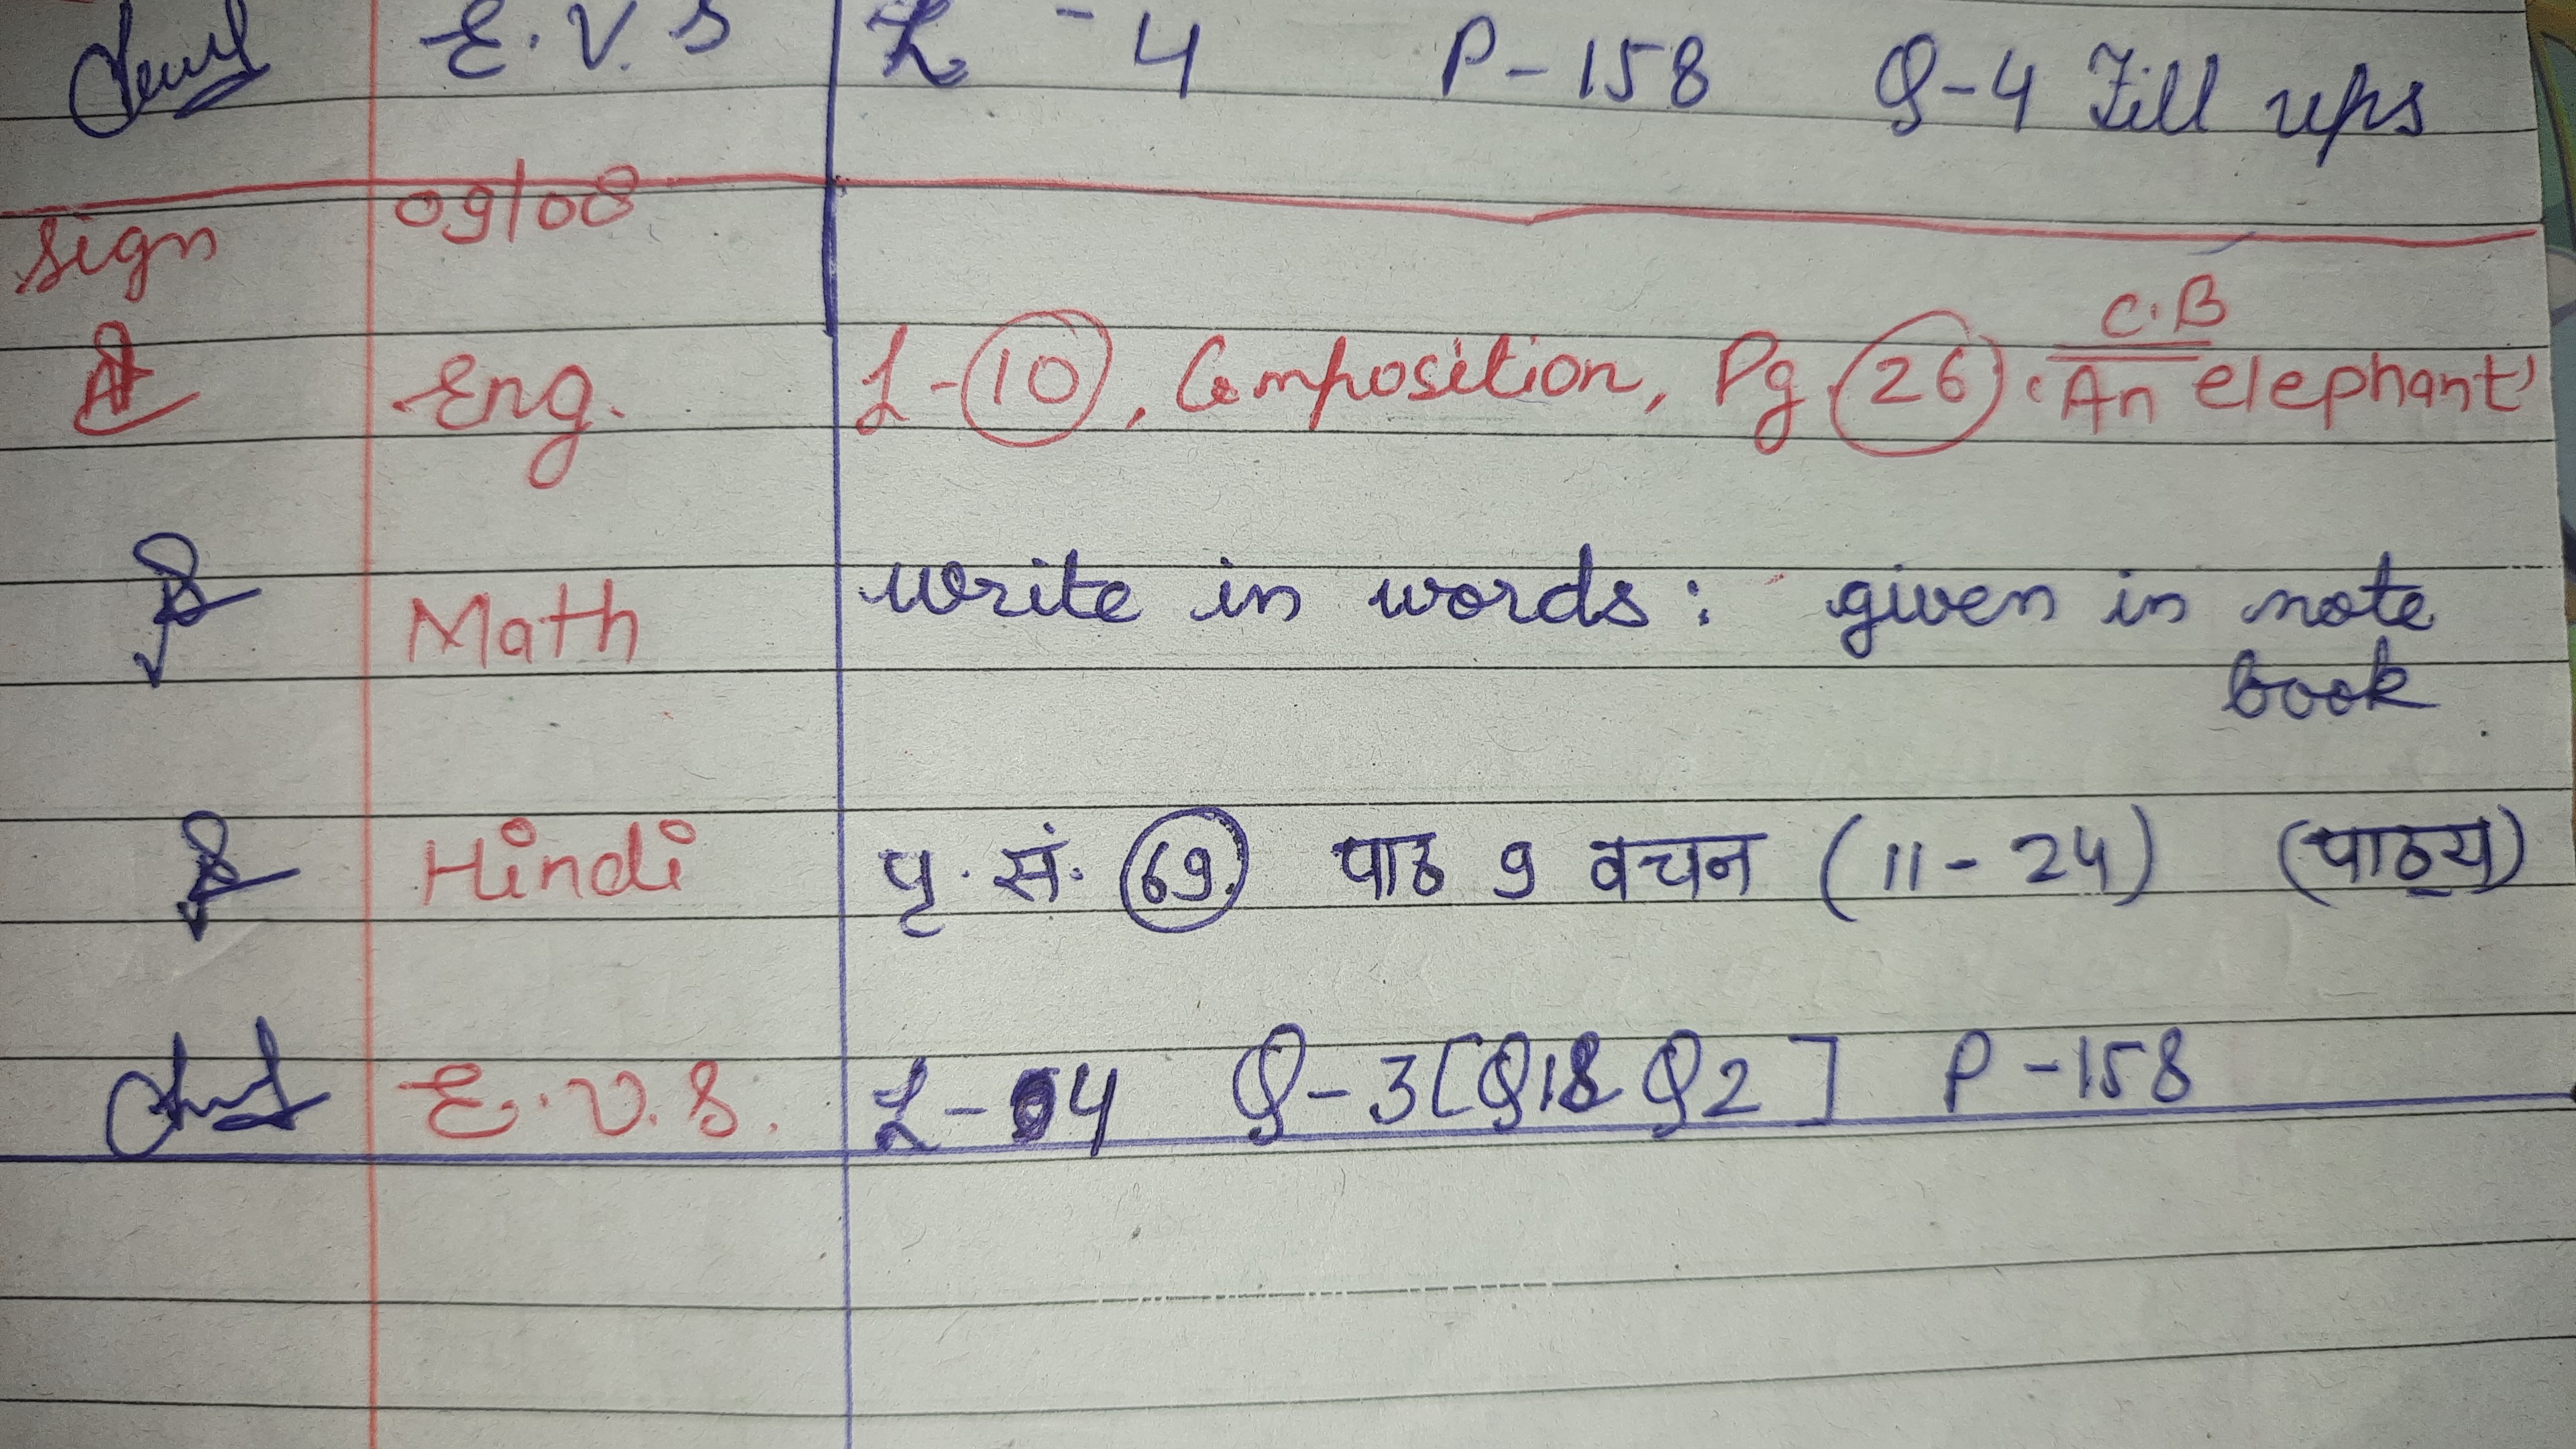 E.V.S L - 4 P-158 Q-4 Fill ups
Sign 09/08
Eng. L-10, Composition, Pg. 26. C.B 'An elephant'
Math write in words: given in note
book
Hindi पृ. सं. 69. पाठ 9 वचन (11-24) (पाठ्य)
E.V.S. L-04 Q-3[Q1& Q2] P-158